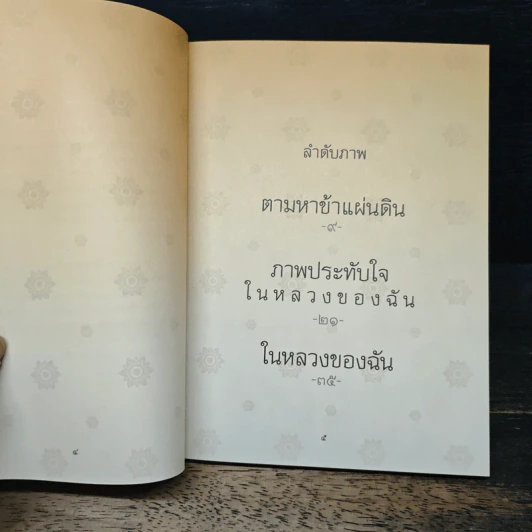 ลำดับภาพ
ตามหาข้าแผ่นดิน
-๙-
ภาพประทับใจ
ในหลวงของฉัน
-๒๑-
ในหลวงของฉัน
-๓๕-
๔
๕